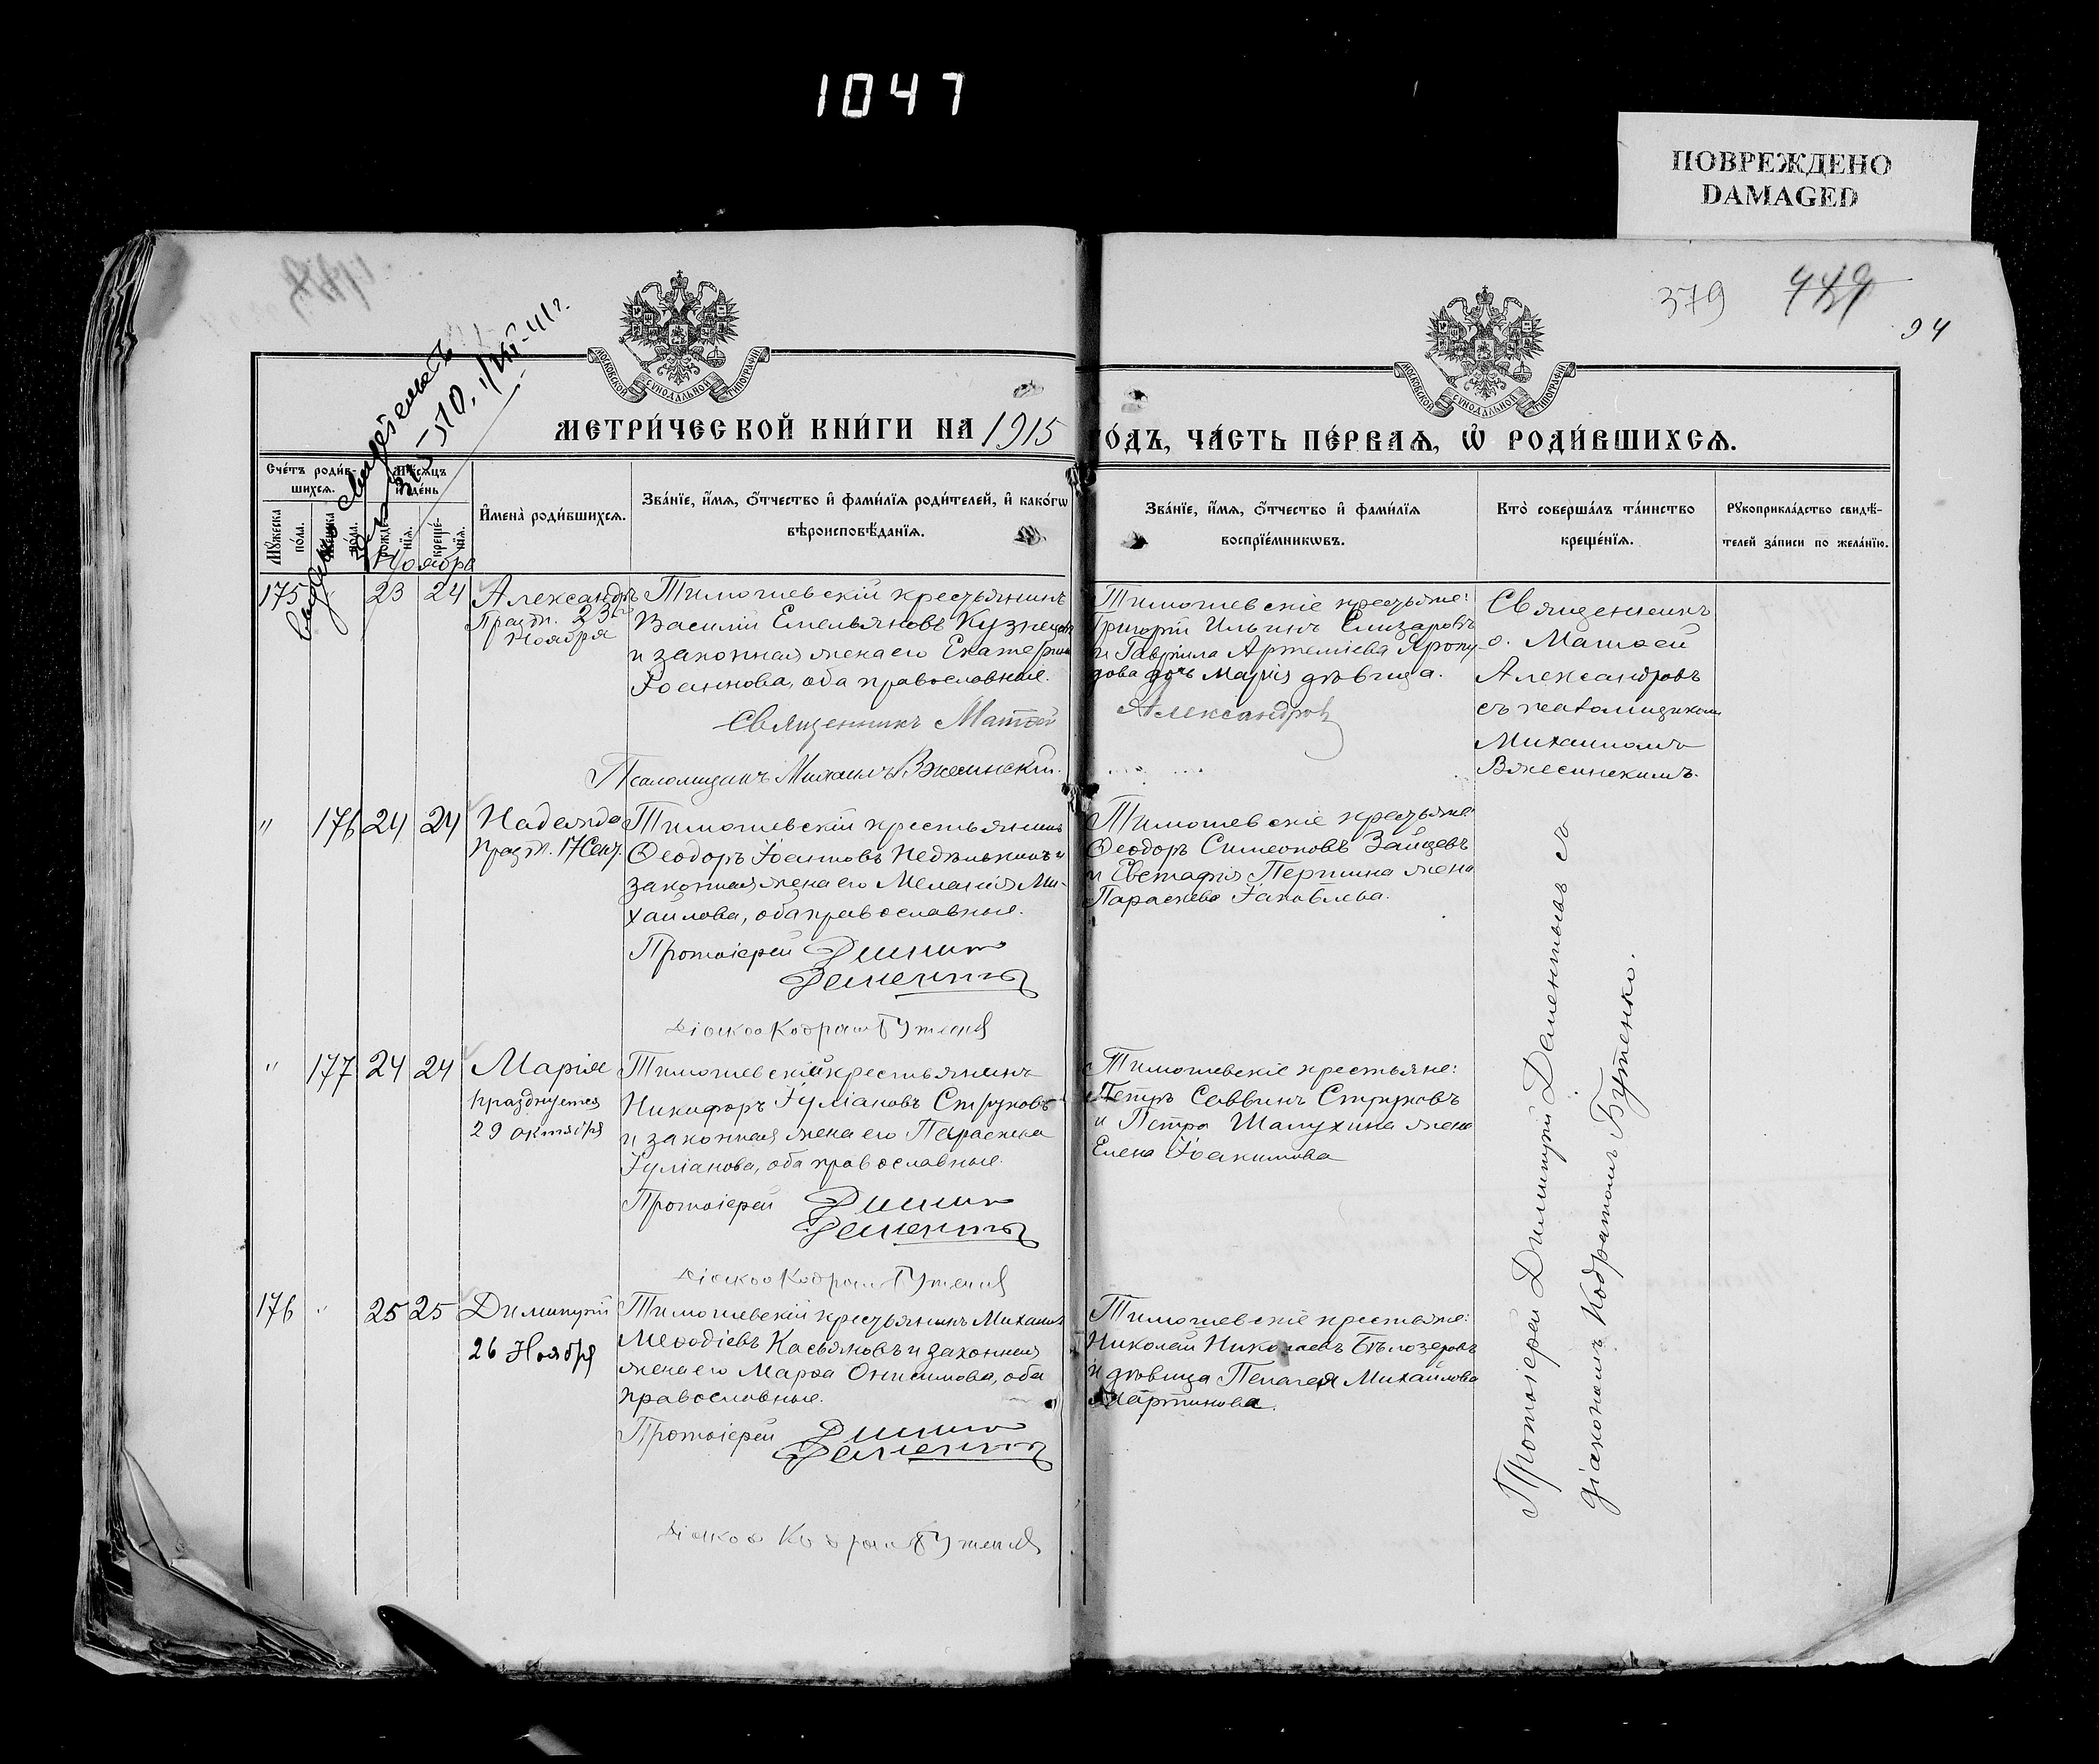 1047
ПОВРЕЖДЕНО
DAMAGED
379
94
МОСКОВСКОЙ СѴНОДАЛЬНОЙ ТИПОГРАФІИ
МОСКОВСКОЙ СѴНОДАЛЬНОЙ ТИПОГРАФІИ
МЕТРИ́ЧЕСКОЙ КНИ́ГИ НА 1915
ГО́ДЪ, ЧА́СТЬ ПЕ́РВАѦ, Ѡ҆ РОДИ́ВШИХСѦ.
Сче́тъ роди́в-
шихсѧ.
Мꙋ́жеска
по́ла.
Же́нска
по́ла.
Мѣ́сѧцъ
и҆ де́нь
рожде́-
нїѧ.
креще́-
нїѧ.
И҆мена̀ роди́вшихсѧ.
Зва́нїе, и҆́мѧ, ѻ҆́тчество и҆ фами́лїѧ роди́телей, и҆ како́гѡ
вѣроисповѣ́данїѧ.
Зва́нїе, и҆́мѧ, ѻ҆́тчество и҆ фами́лїѧ
воспрїе́мникѡвъ.
Кто̀ соверша́лъ та́инство
креще́нїѧ.
Рꙋкоприкла́дство свидѣ́-
телей за́писи по жела́нїю.
Ноября
175
23 24
Александръ
Празд. 23го
Ноября
Тимошевскій крестьянинъ
Василій Емельяновъ Кузнецовъ
и законная жена его Екатерина
Іоаннова, оба православные.
Священникъ Матѳей
Александровъ
Псаломщикъ Михаилъ Вжесинскій.
Тимошевскіе крестьяне:
Григорій Ильинъ Елизаровъ
и Гавріила Артеміева
дочь Марія дѣвица.
Священникъ
о. Матѳей
Александровъ
съ псаломщикомъ
Михаиломъ
Вжесинскимъ.
" 176 24 24
Надежда
Празд. 17 Сент.
Тимошевскій крестьянинъ
Ѳеодоръ Іоанновъ Недѣлькинъ и
законная жена его Меланія Ми-
хаилова, оба православные.
Протоіерей Димит
Дементьев
Діакон Кодрат Бутенко
Тимошевскіе крестьяне
Ѳеодоръ Симеоновъ Зайцевъ
и Евстафія Першина жена
Параскева Іаковлева.
" 177 24 24
Марія
празднуется
29 октября
Тимошевскій крестьянинъ
Никифоръ Іуліановъ Струковъ
и законная жена его Параскева
Іуліанова, оба православные.
Протоіерей Димит
Дементьев
Діакон Кодрат Бутенко
Тимошевскіе крестьяне:
Петръ Саввинъ Струковъ
и Петра Шалухина жена
Елена Іоакимова
176 " 25 25
Димитрій
26 Ноября
Тимошевскій крестьянинъ Михаилъ
Меѳодіевъ Касьяновъ и законная
жена его Марѳа Онисимова, оба
православные.
Протоіерей Димит
Дементьев
Діакон Кодрат Бутенко
Тимошевскіе крестьяне:
Николай Николаевъ Бѣлозеровъ
и дѣвица Пелагея Михайлова
Мартинова.
Протоіерей Димитрій Дементьевъ съ
діакономъ Кодратомъ Бутенко.